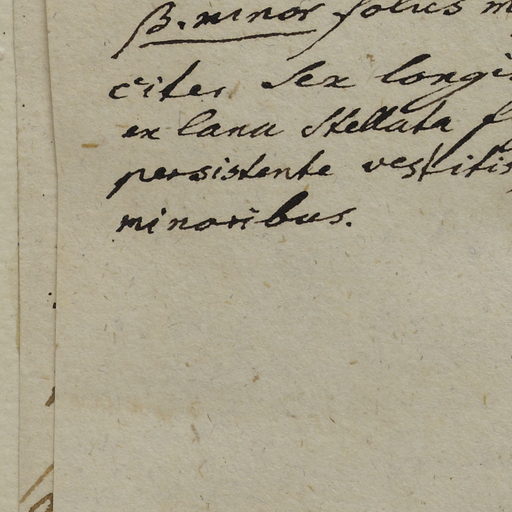 β. minor folus m
cites sex longi
ex lana stellata f
persistente vestitis
minoribus.